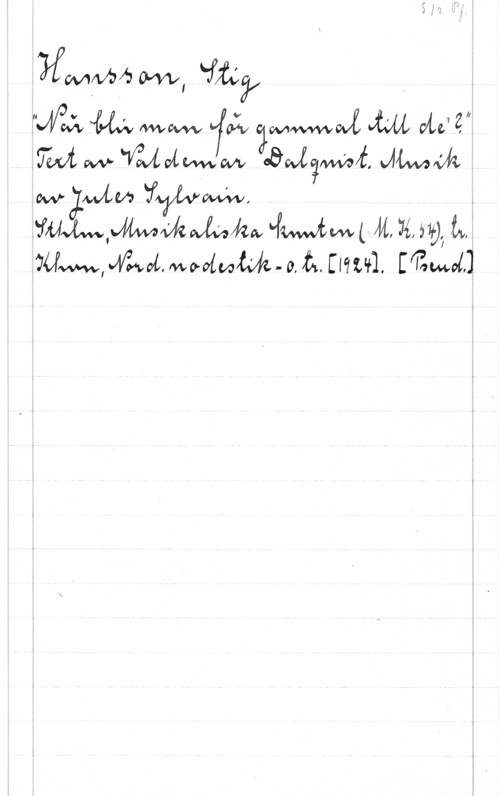 S / 2. Pf.
Hansson, Stig
"När blir man för gammal till de'?"
Text av Valdemar Dalqnist. Musik
av Jules Sylvain.
Sthlm, Musikaliska knuten (M. K. 54), tr.
Khvn, Nord. nodestik- o. tr. [1924]. [Pseud.]